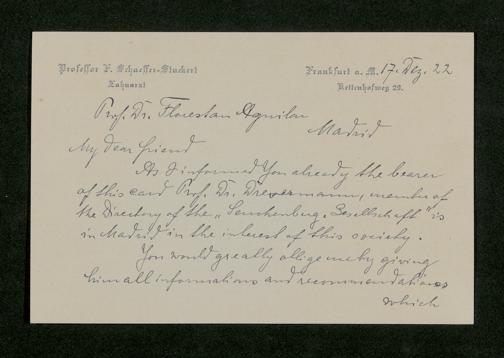 Professor F. Schaeffer-Stuckert
Zahnarzt
Frankfurt a. M. 17. Dez. 22
Kettenhofweg 29.
Prof. Dr. Florestan Aguilar
Madrid
My dear friend
As I informed You already the bearer
of this card Prof. Dr. Drevermann, member of
the Directory of the „Senckenberg. Gesellschaft" is
in Madrid in the interest of this society.
You would greatly oblige me by giving
him all informations and recommendations
which